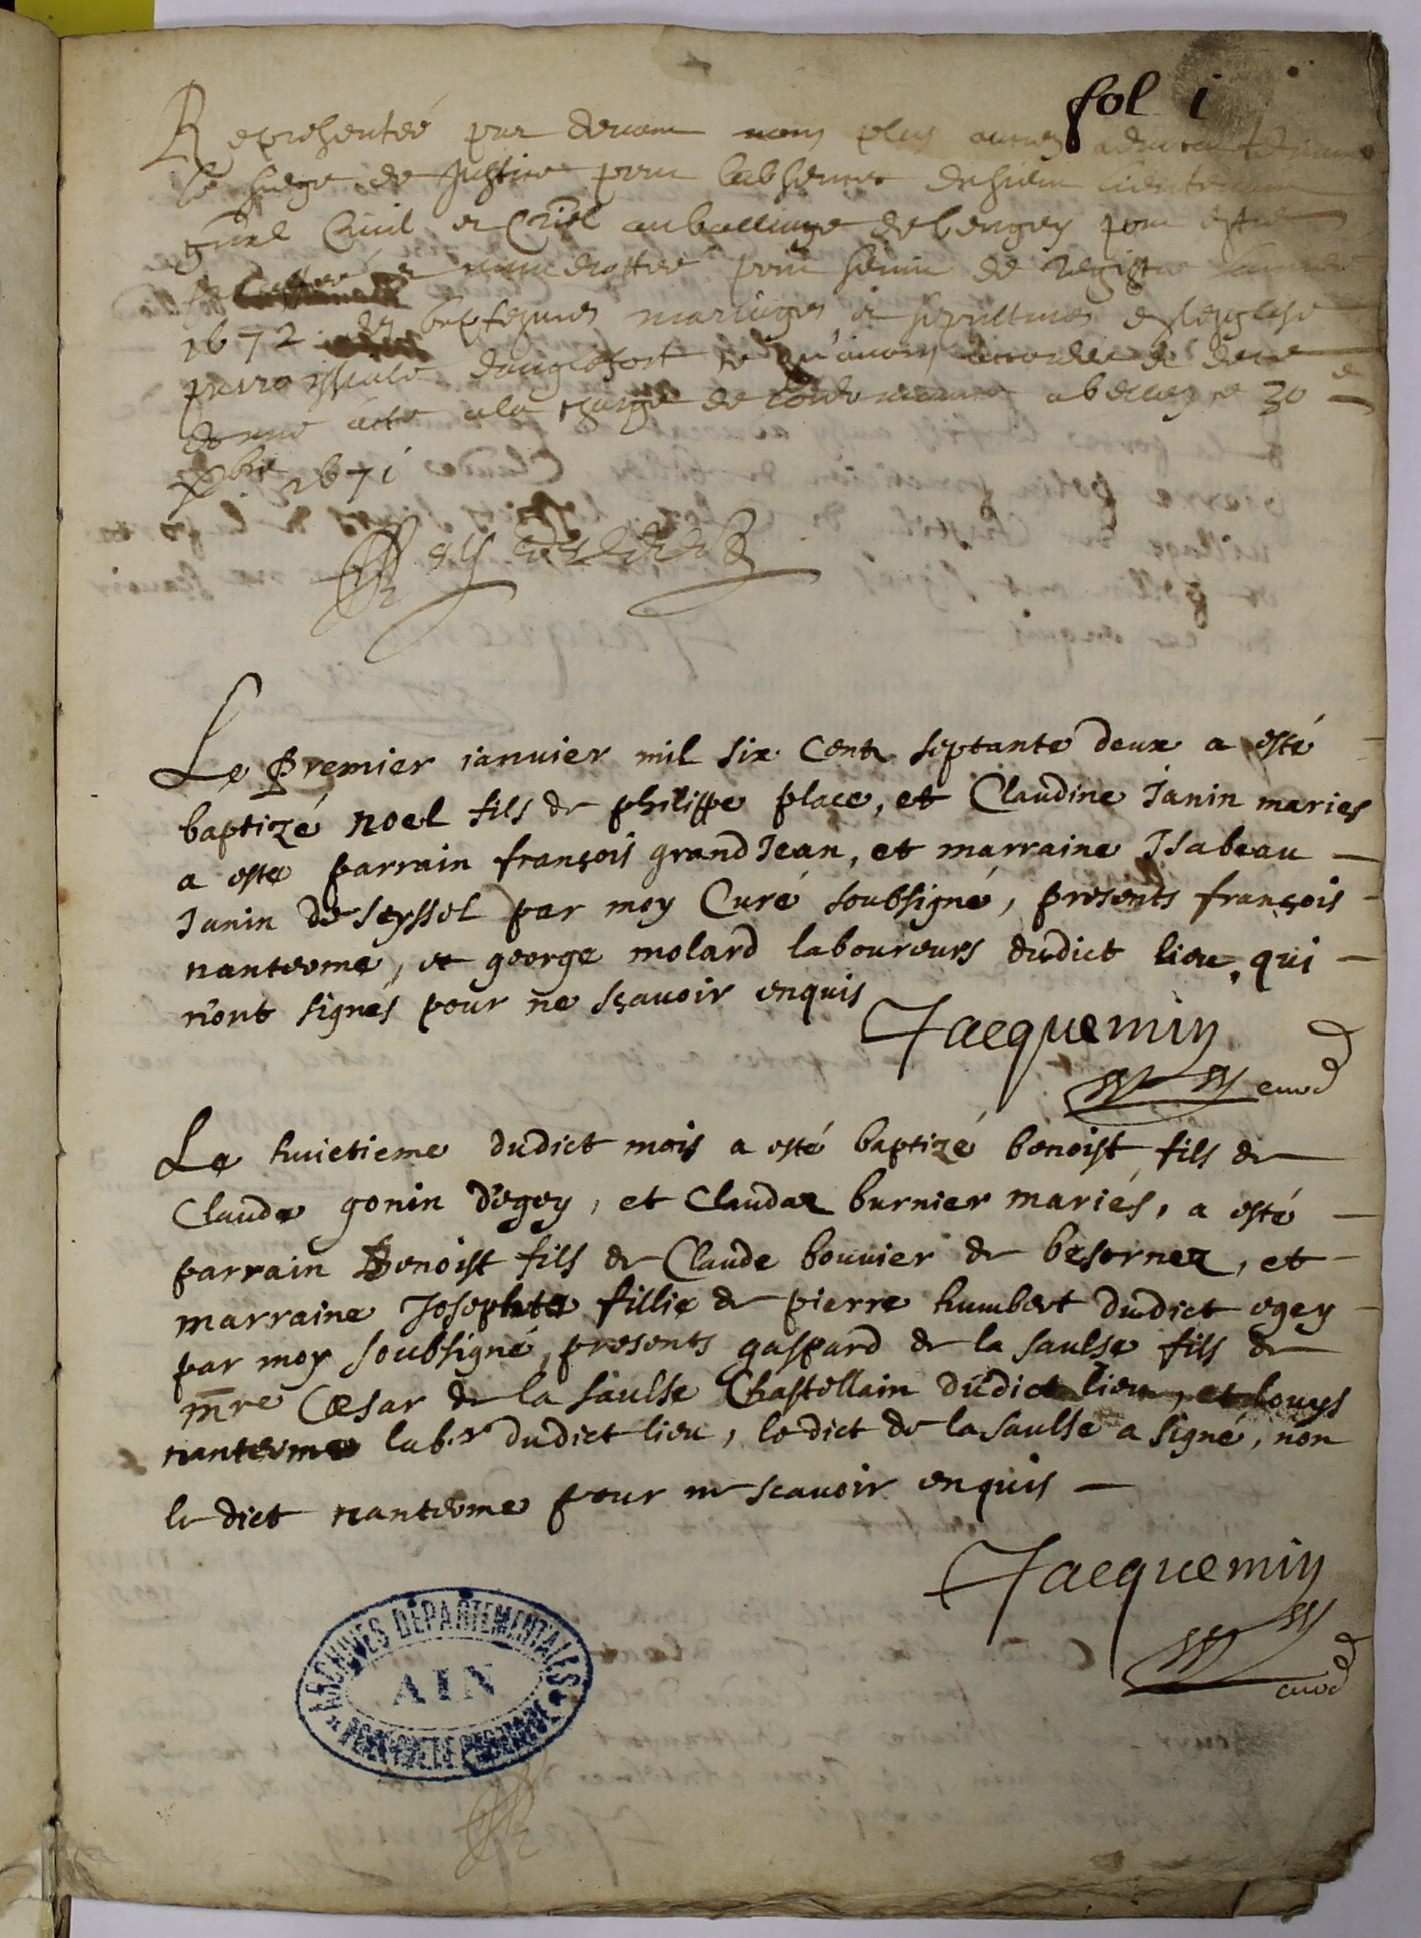 fol 1
Representé par devant nous plus ancien advocat tenant
le siege de Justice pour labsence
gnal Civil et Criel au balliage de beugey pour estre
et pour servir de Registre
1672 des baptesmes mariages et sepultures esleglise
parrossiale danglefort ce qu'avons
donné acte a la charge de Lordonnance a belley ce 30e
Xbre 1671
Le Premier ianvier mil six Cents septante deux a esté
baptizé noel fils de philippe place, et Claudine Janin mariés
a este parrain françois grand Jean, et marraine Isabeau
Janin de seyssel par moy Curé soubsigné, presents françois
nanterme, et george molard laboureurs dudict lieu, qui
n'ont signés pour ne sçavoir enquis
Jacquemin
curé
Le huictieme dudict mois a esté baptizé benoist fils de
Claude gonin d'egey, et Claudaz burnier mariés, a esté
parrain Benoist fils de Claude bouvier de besernez, et
marraine Josephte fillie de pierre humbert dudict egey
par moy soubsigné, presents gaspard de la saulse fils de
mre Cæsar de la saulse Chastellain dudict lieu, et louys
nanterme lab.r dudict lieu, le dict de la saulse a signé, non
le dict nanterme pour ne scavoir enquis
Jacquemin
curé
ARCHIVES DÉPARTEMENTALES
AIN